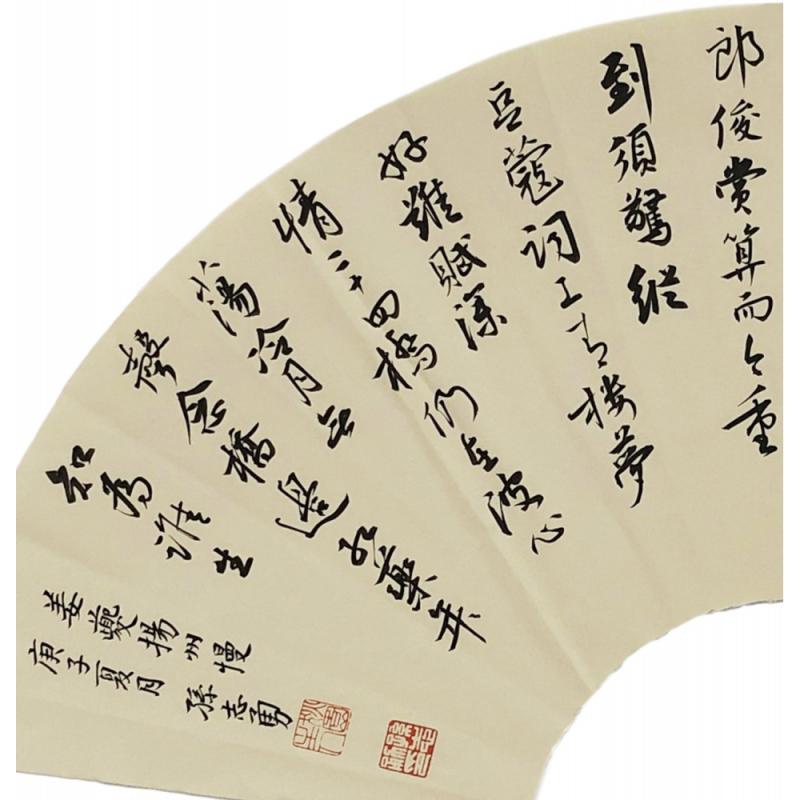 郎俊賞算而今重
到須驚縱
豆蔻詞工青樓夢
好難賦深
情二十四橋仍在波心
蕩冷月無
聲念橋邊紅藥年
知為誰生
姜夔揚州慢
庚子夏月 孫志勇